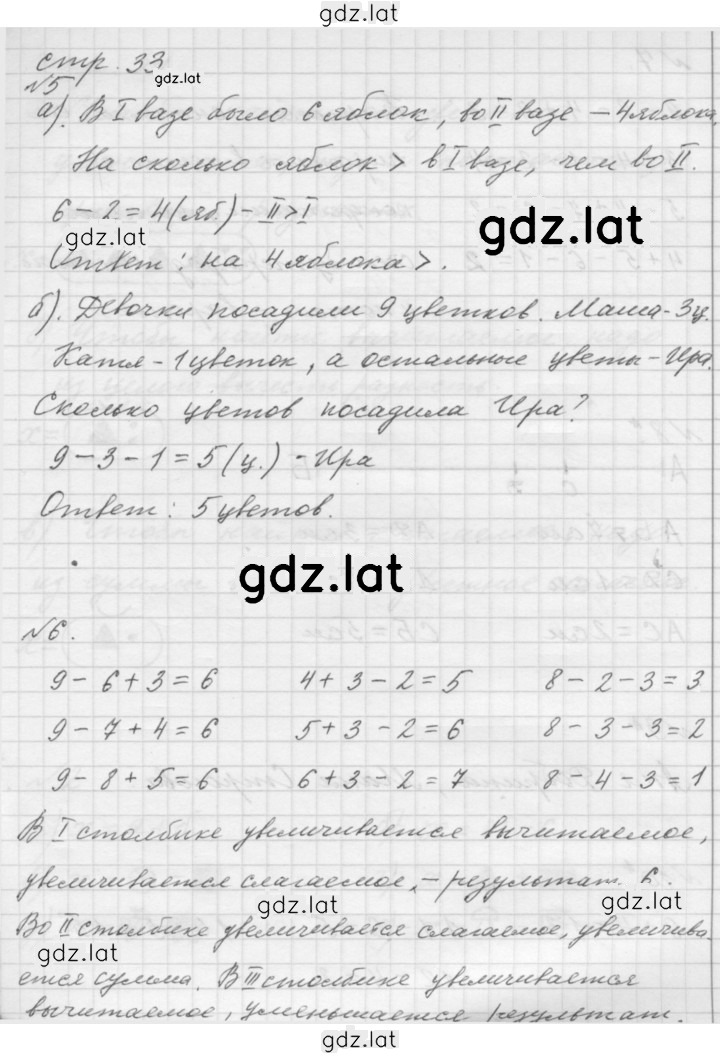 gdz.lat
стр. 33
gdz.lat
№5
а). В I вазе было 6 яблок, во II вазе – 4 яблока.
На сколько яблок > в I вазе, чем во II.
6 – 2 = 4 (яб) – II > I
gdz.lat
gdz.lat
Ответ: на 4 яблока >.
б). Девочки посадили 9 цветков. Маша - 3ц.
Катя - 1 цветок, а остальные цветы - Ира.
Сколько цветов посадила Ира?
9 – 3 – 1 = 5 (ц.) - Ира
Ответ: 5 цветов.
gdz.lat
№6.
9 – 6 + 3 = 6 4 + 3 – 2 = 5 8 – 2 – 3 = 3
9 – 7 + 4 = 6 5 + 3 – 2 = 6 8 – 3 – 3 = 2
9 – 8 + 5 = 6 6 + 3 – 2 = 7 8 – 4 – 3 = 1
В I столбике увеличивается вычитаемое,
увеличивается слагаемое, – результат 6.
gdz.lat
gdz.lat
Во II столбике увеличивается слагаемое, увеличива-
gdz.lat
ется сумма. В III столбике увеличивается
вычитаемое, уменьшается результат.
gdz.lat